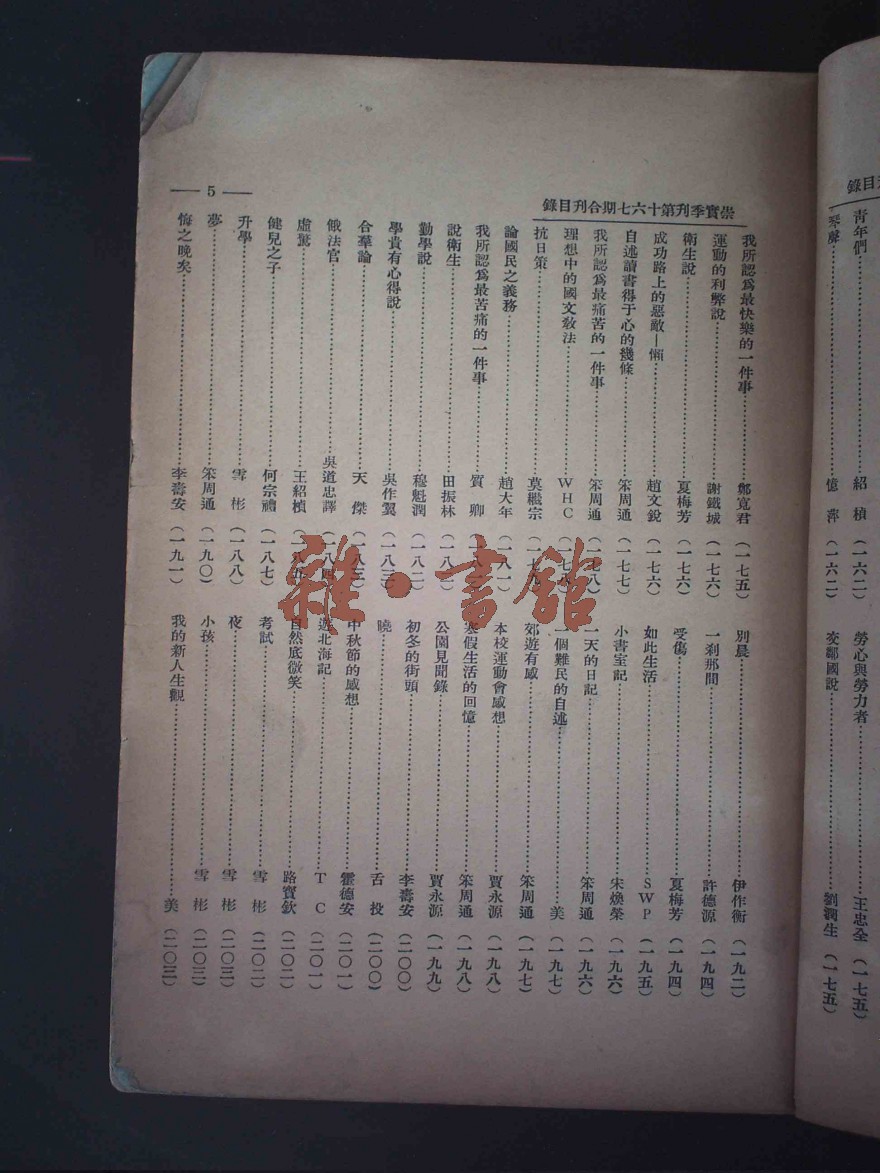 青年們 紹楨 (一六二)
琴聲 憶萍 (一六二)
勞心與勞力者 王忠全 (一七五)
交鄰國說 劉潤生 (一七五)
崇實季刊第十六七期合刊目錄
我所認爲最快樂的一件事 鄭寬君 (一七五)
運動的利弊說 謝鐵城 (一七六)
衛生說 夏梅芳 (一七六)
成功路上的惡敵—懶 趙文銳 (一七六)
自述讀書得于心的幾條 笨周通 (一七七)
我所認爲最痛苦的一件事 笨周通 (一七八)
理想中的國文教法 WHC (一七八)
抗日策 莫繼宗
論國民之義務 趙大年 (一八一)
我所認爲最苦痛的一件事 質卿
說衛生 田振林 (一八二)
勸學說 穆魁潤 (一八二)
學貴有心得說 吳作翼 (一八三)
合羣論 天傑 (一八三)
俄法官 吳道忠譯 (一八四)
虛驚 王紹楨 (一八五)
健兒之子 何宗禮 (一八七)
升學 雪彬 (一八八)
夢 笨周通 (一九〇)
悔之晚矣 李壽安 (一九一)
別晨 伊作衡 (一九二)
一刹那間 許德源 (一九四)
受傷 夏梅芳 (一九四)
如此生活 SWP (一九五)
小書室記 宋煥榮 (一九六)
一天的日記 笨周通 (一九六)
一個難民的自述 美 (一九七)
郊遊有感 笨周通 (一九七)
本校運動會感想 賈永源 (一九八)
寒假生活的回憶 笨周通 (一九八)
公園見聞錄 賈永源 (一九九)
初冬的街頭 李壽安 (二〇〇)
曉 舌投 (二〇〇)
中秋節的感想 霍德安 (二〇一)
遊北海記 TC (二〇一)
自然底微笑 路寶欽 (二〇二)
考試 雪彬 (二〇二)
夜 雪彬 (二〇三)
小孩 雪彬 (二〇三)
我的新人生觀 美 (二〇三)
— 5 —
雜·書館